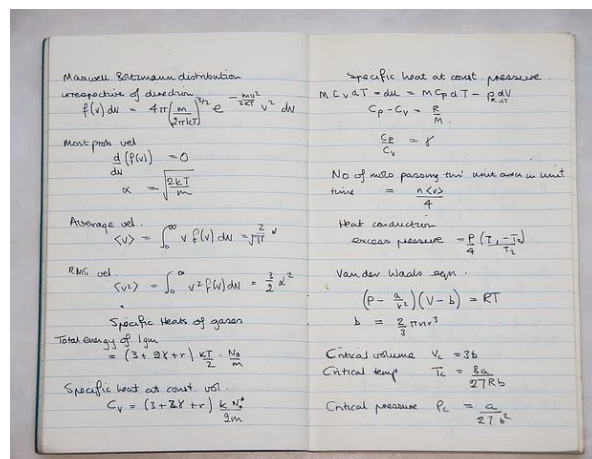 Maxwell Boltzmann distribution
irrespective of direction
f(v) dv = 4π(m/2πkT)^3/2 e^-mv²/2kT v² dv
Most prob vel
d/dv (f(v)) = 0
α = √(2kT/m)
Average vel.
<v> = ∫₀^∞ v f(v) dv = 2/√π α
RMS vel.
<v²> = ∫₀^∞ v² f(v) dv = 3/2 α²
Specific Heats of gases
Total energy of 1gm
= (3 + 2γ + r) kT/2 · N₀/m
Specific heat at const. vol.
Cv = (3 + 2γ + r) k N₀/2m
Specific heat at const. pressure.
M Cv dT = du = M Cp dT − dV
Cp − Cv = R/M.
Cp/Cv = γ
No of mols passing thro' unit area in unit
time = n<v>/4
Heat conduction
excess pressure = P/4 (T₁ − T₂)/T₂
Van der Waals eqn.
(P − a/v²)(V − b) = RT
b = 2/3 πnr³
Critical volume Vc = 3b
Critical temp Tc = 8a/27Rb
Critical pressure Pc = a/27b²